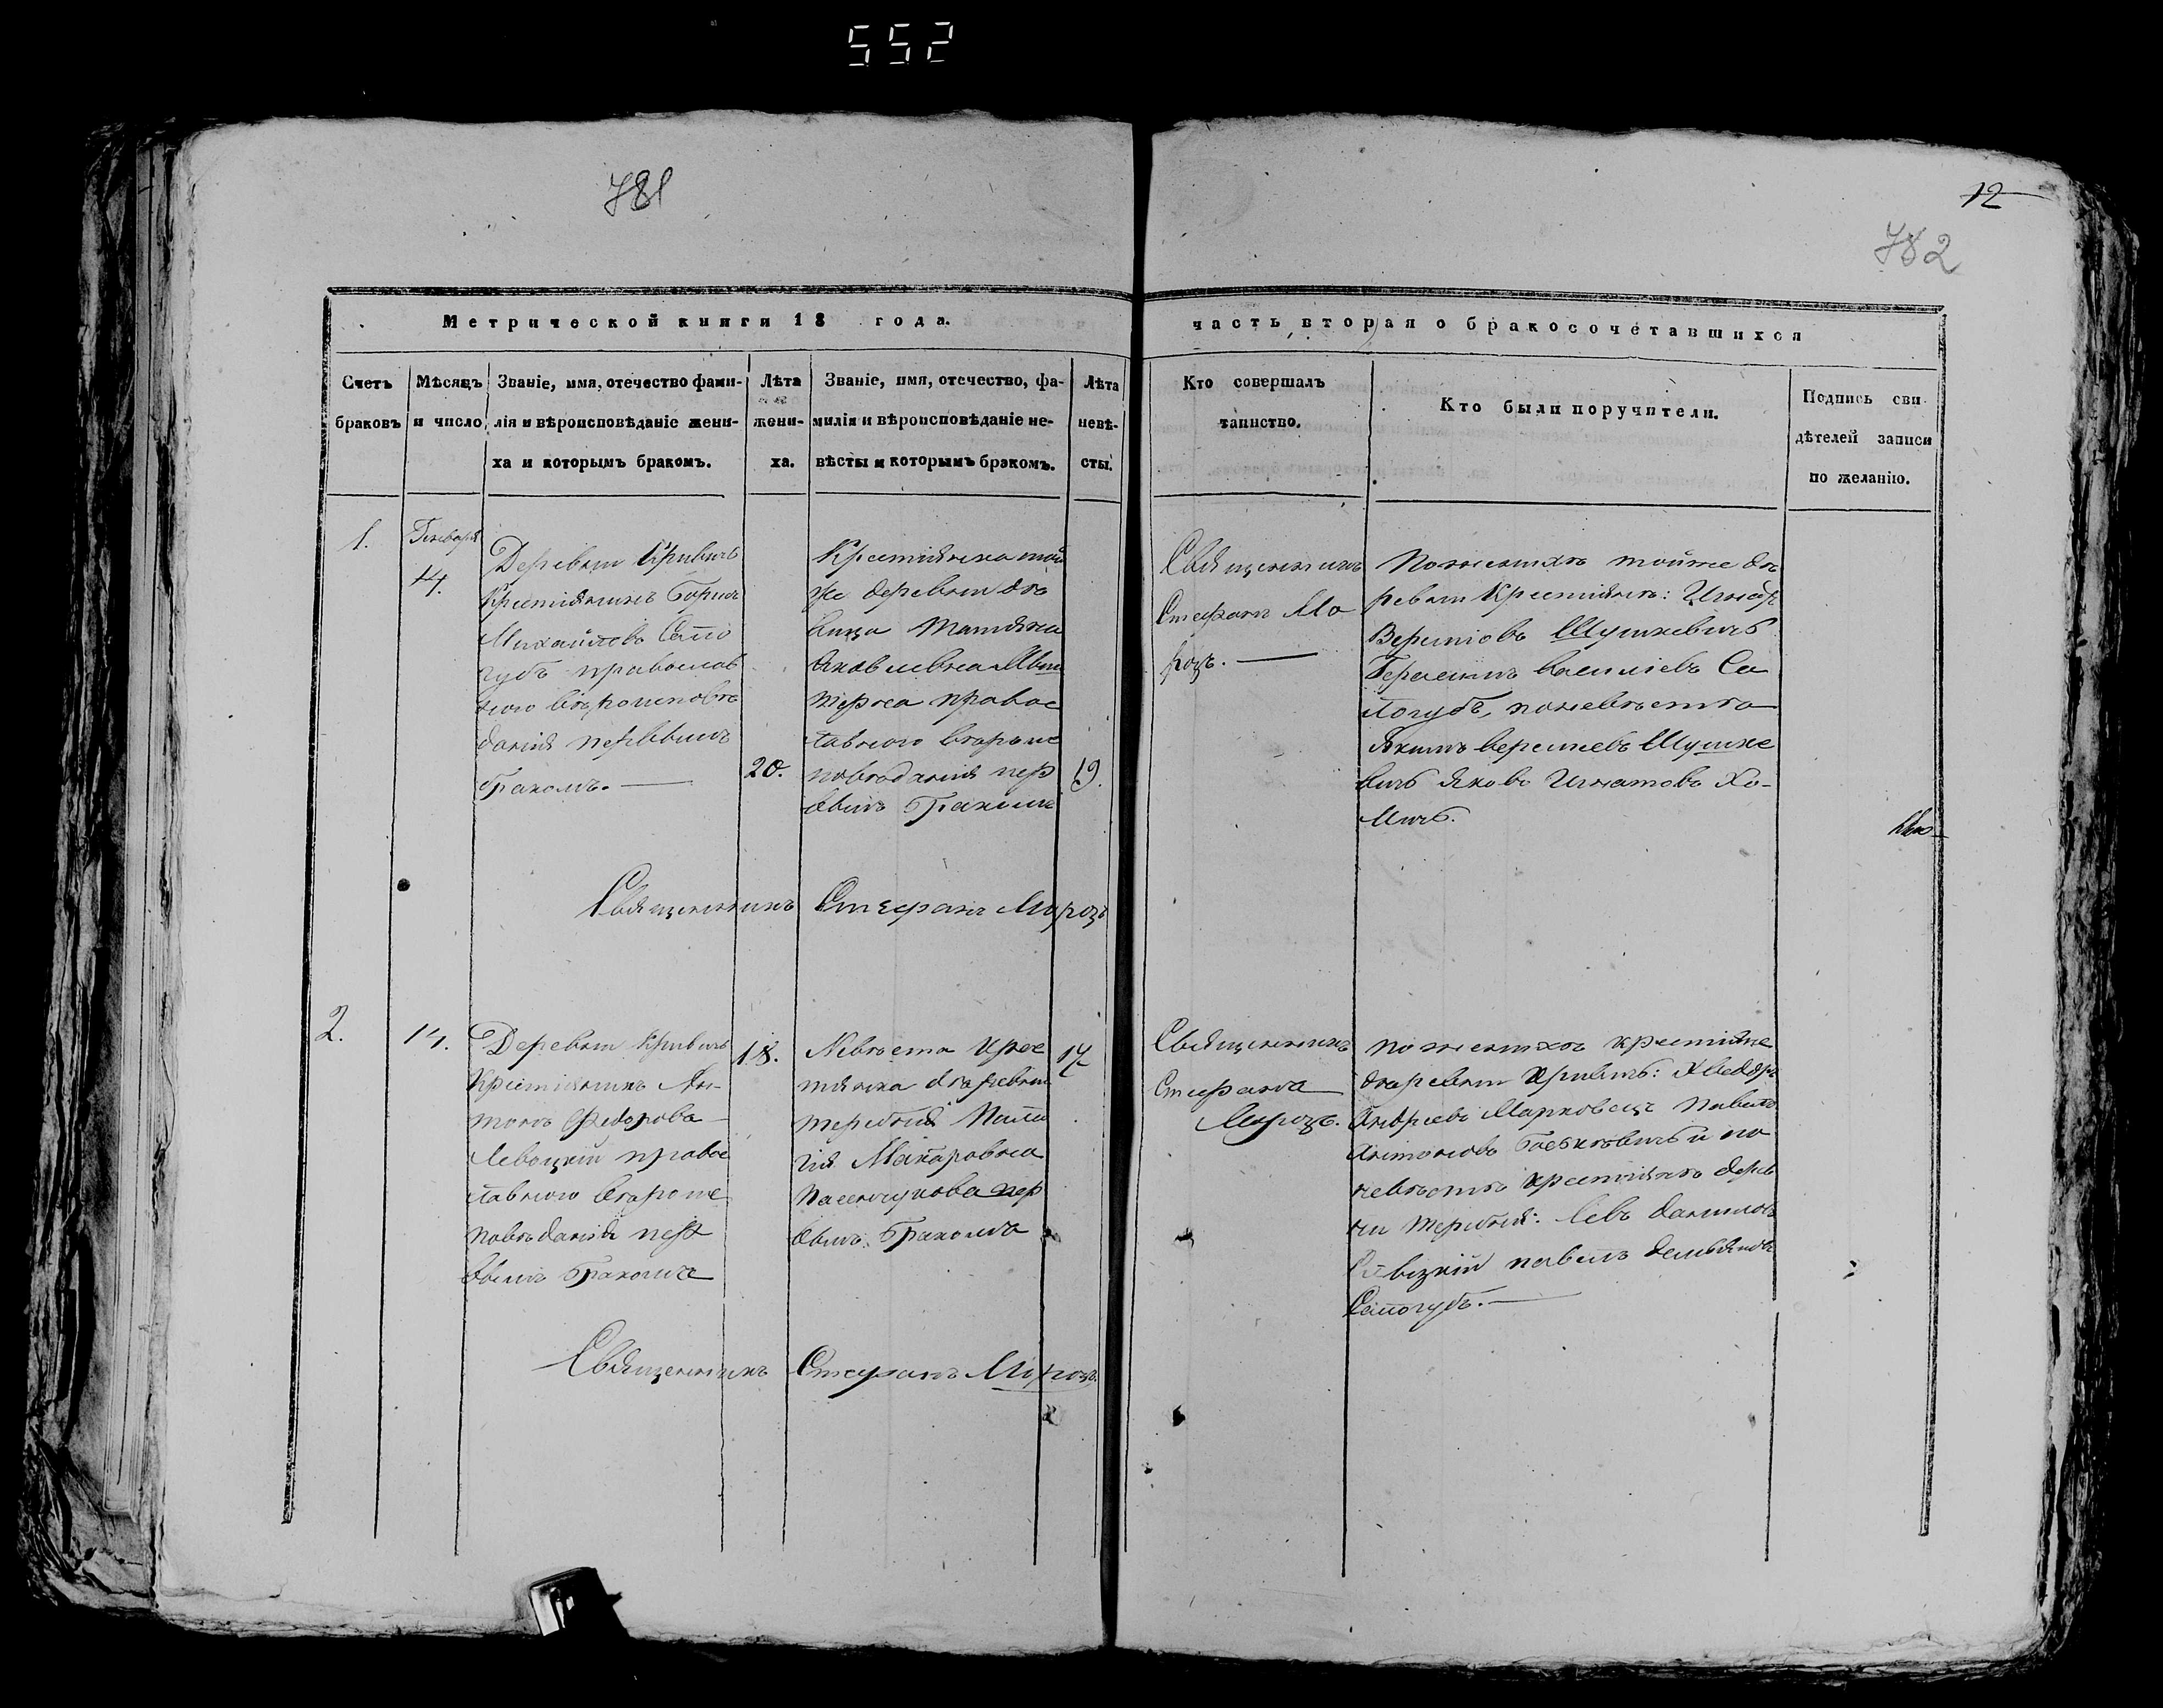 552
781
12
782
Метрической книги 18 года.
часть вторая о бракосочетавшихся
Счетъ браковъ
Мѣсяцъ и число
Званіе, имя, отечество фами-
лія и вѣроисповѣданіе жени-
ха и которымъ бракомъ.
Лѣта жени-
ха.
Званіе, имя, отечество, фа-
милія и вѣроисповѣданіе не-
вѣсты и которымъ бракомъ.
Лѣта невѣ-
сты.
Кто совершалъ
таинство.
Кто были поручители.
Подпись сви
дѣтелей записи
по желанію.
1.
Генваря
14.
Деревни Кривичь
Крестіянинъ Борисъ
Михайловъ Сапо
губъ православ
ного вѣроисповѣ
данія первымъ
бракомъ.
20.
Крестіянка той
же деревни дѣ
вица Татіяна
Яковлевна
православ
тавного вѣроис
повѣданія пер
вымъ бракомъ
19.
Священникъ
Стефанъ Мо
розъ.
По женихѣ тойже де
ревни Крестіянъ: Игнатъ
Шушкевичь
Герасимъ Василіевъ Са
погубъ, по невѣстѣ
Якимъ Шушке
вичь Яковъ Игнатовъ Хо-
мичь.
Священникъ Стефанъ Морозъ
2.
14.
Деревни Кривичь
Крестіянинъ Ан-
тонъ Федоровъ
Левоцкій правос
лавного вѣроис
повѣданія пер
вымъ бракомъ
18.
Невѣста крес
тянка деревни
Теребня Пала
гія Макаровна
пер
вымъ бракомъ
17
Священникъ
Стефанъ
Морозъ.
по женихѣ крестіяне
деревни Кривичь:
Андреевъ Марковецъ Павелъ
Антоновъ и по
невѣстѣ крестіянъ дерев
ни Теребня: Левъ Даниловъ
Левоцкій Павелъ Демьяновъ
Сапогубъ.
Священникъ Стефанъ Морозъ.